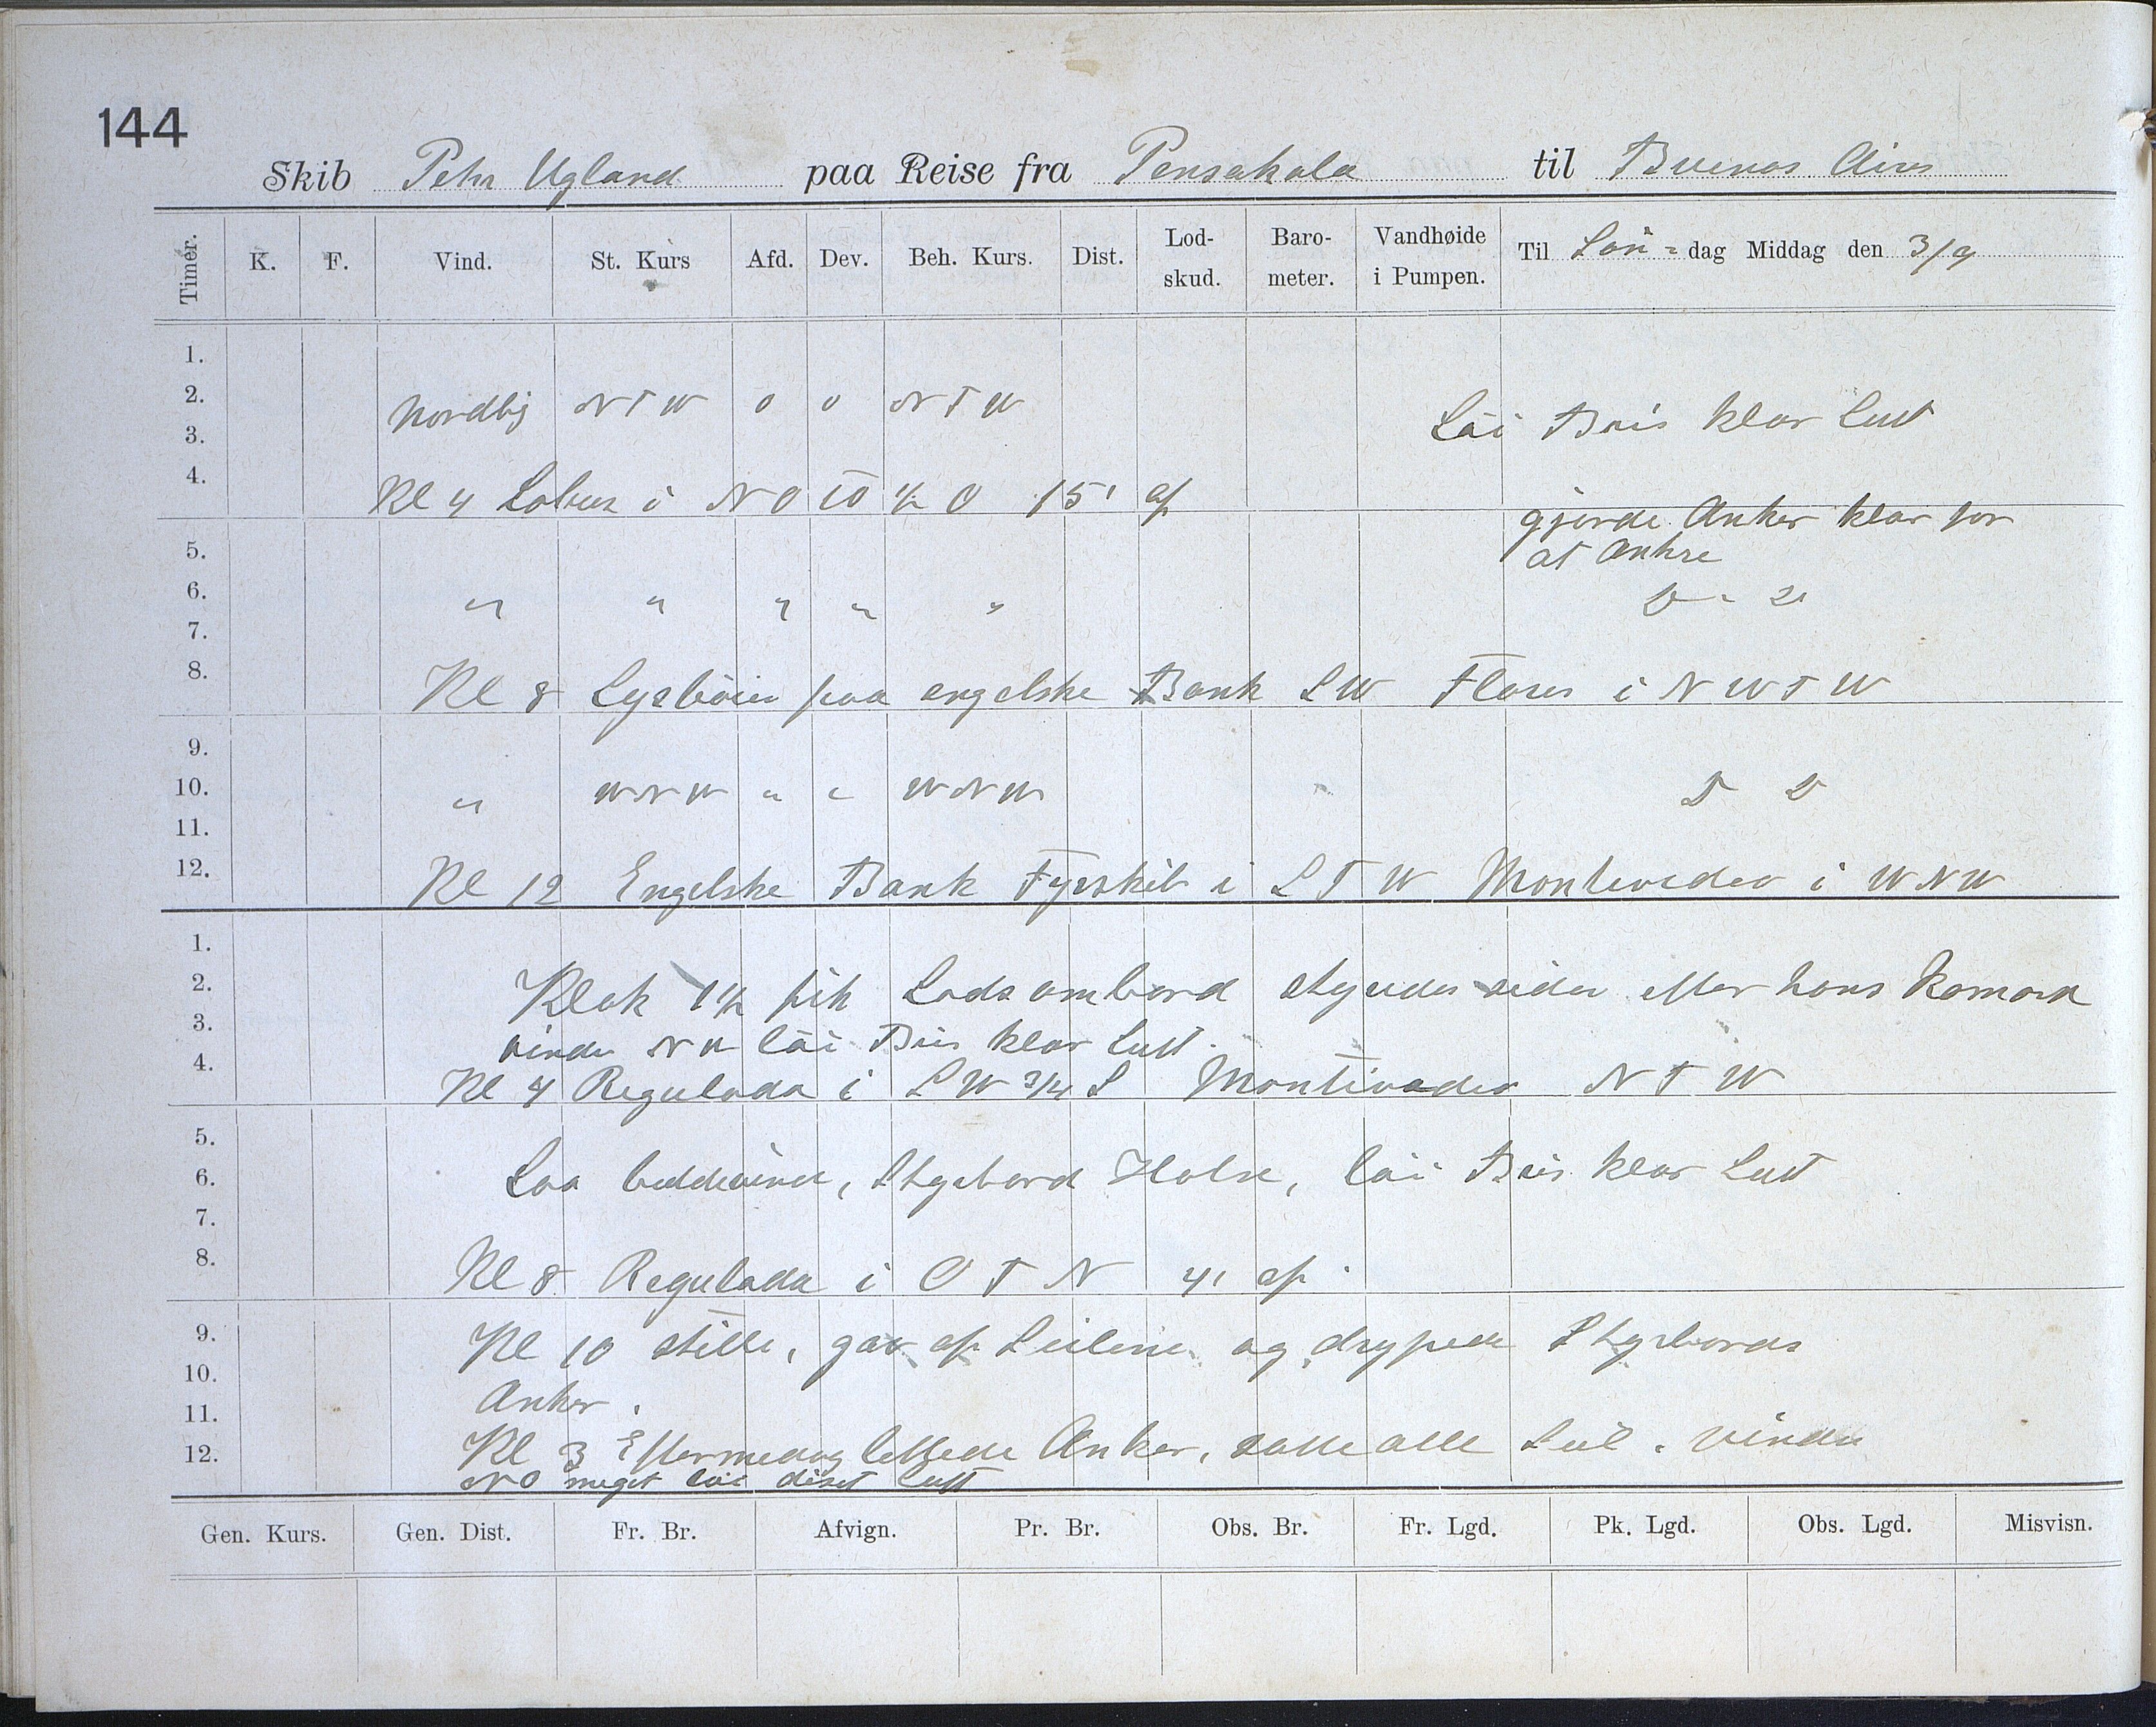 144
Skib Peter Ugland paa Reise fra Pensakola til Buenos Aires
Timer. K. F. Vind. St. Kurs Afd. Dev. Beh. Kurs. Dist. Lod-skud. Baro-meter. Vandhøide i Pumpen. Til Løn-dag Middag den 3/9
1.
2. Nordlig NTW 0 0 NTW
3. Løi Bris klar Luft
4. Kl 4 Lobus i NO TO 1/2 O 15' af
gjorde Anker klar for
5. at Ankre
6. " " " " "
7.
8. Kl 8 Lysbøien paa engelske Bank SW Flores i NWTW
9.
10. " WNW " " WNW D D
11.
12. Kl 12 Engelske Bank Fyrskib i STW Montevideo i WNW
1.
2. Klok 1 1/2 fik Lods ombord styredes siden efter hans Komando
3. vinden NW løi Bris klar Luft.
4. Kl 4 Regulada i SW 3/4 S Montivideo NTW
5.
6. Laa bidevind, Styrbord Halse, løi Bris klar Luft
7.
8. Kl 8 Regulada i OTN 4' af.
9. Kl 10 stille, gav op Seilene og droppede Styrbords
10.
11. Anker.
12. Kl 3 Eftermedag lettede Anker, satte alle Seil. vinden
NO meget løi diset Luft
Gen. Kurs. Gen. Dist. Fr. Br. Afvign. Pr. Br. Obs. Br. Fr. Lgd. Pk. Lgd. Obs. Lgd. Misvisn.